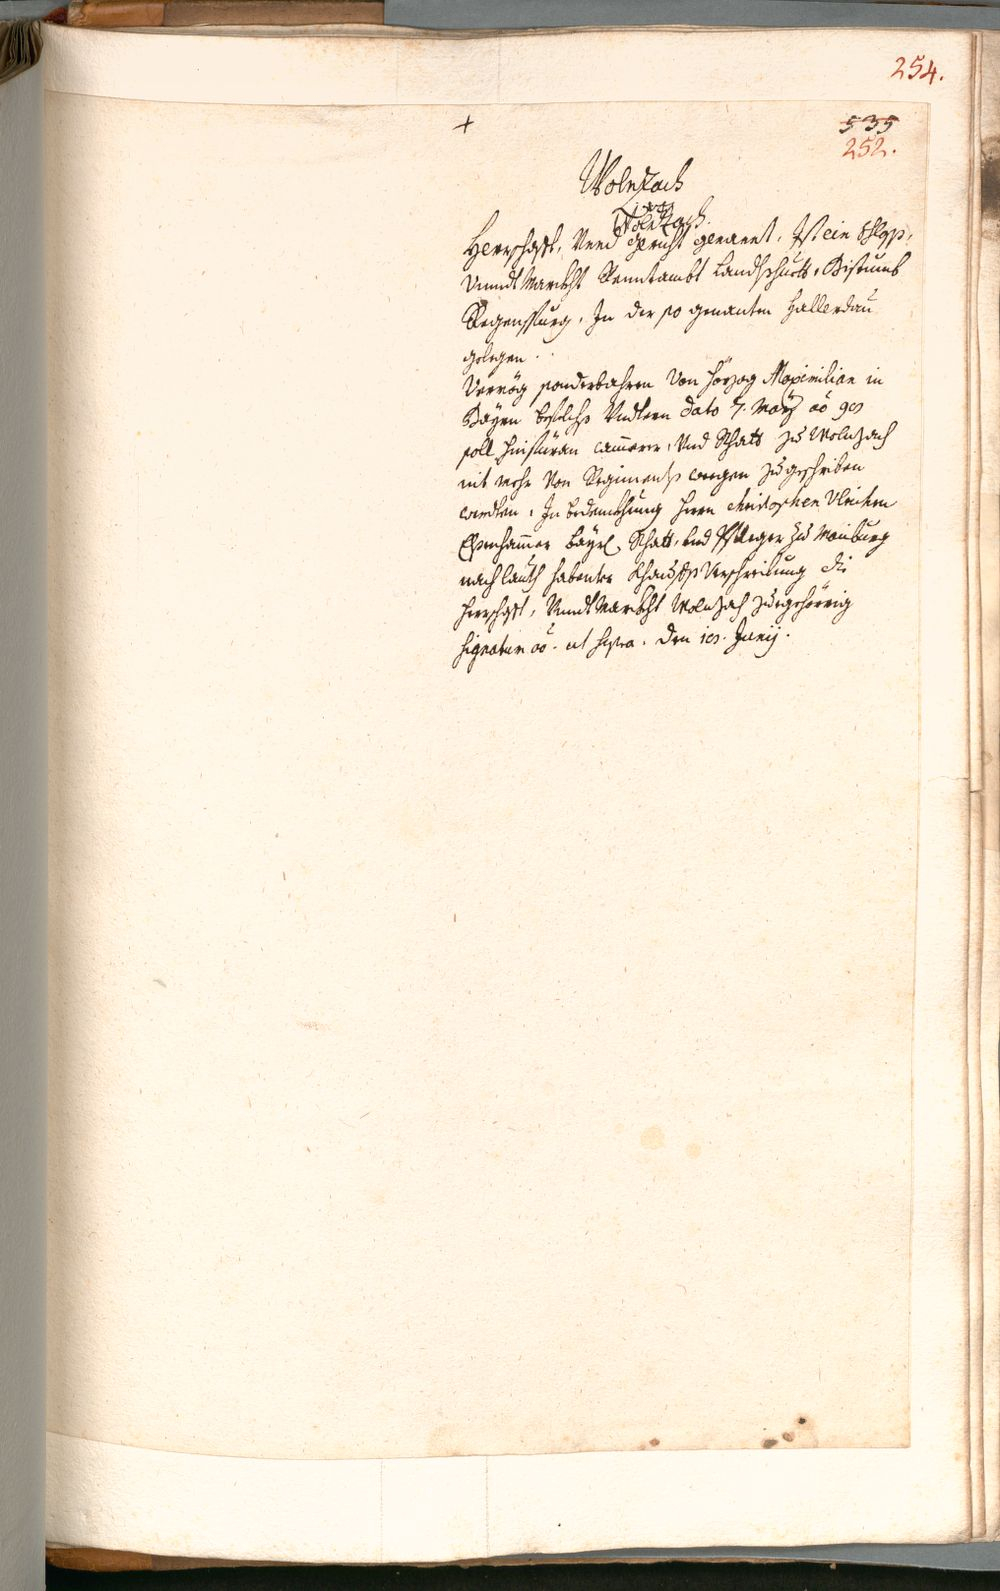 254.
+
535
252.
Wolnzach
Wolnzach.
Herrschafft, Vnnd gericht genannt, Ist ein Schloss,
Vnndt Marckht Renntambt Landtshuett, Bistumb
Regenspurg, In der so genanten Hallerdau
gelegen.
Vermög sonderbahren Von Herzog Maximilian in
Bayrn beuelchs Vndtern dato 7. May ao 99
soll hinfüran Cammerer, Vnd Rhatt zu Wolnzach
nit mehr Von Regiments wegen zugeschriben
werden, In bedenckhung Herrn Christophen Vlrichen
Elsenhaimer Bayrl. Rhatt, vnd Pfleger zu Mainburg
nach lauth habenter Khauffs Verschreibung die
Herrschafft, Vnndt Marckht Wolnzach zuegehörig
signatum ao. ut supra. den 19. Junij.